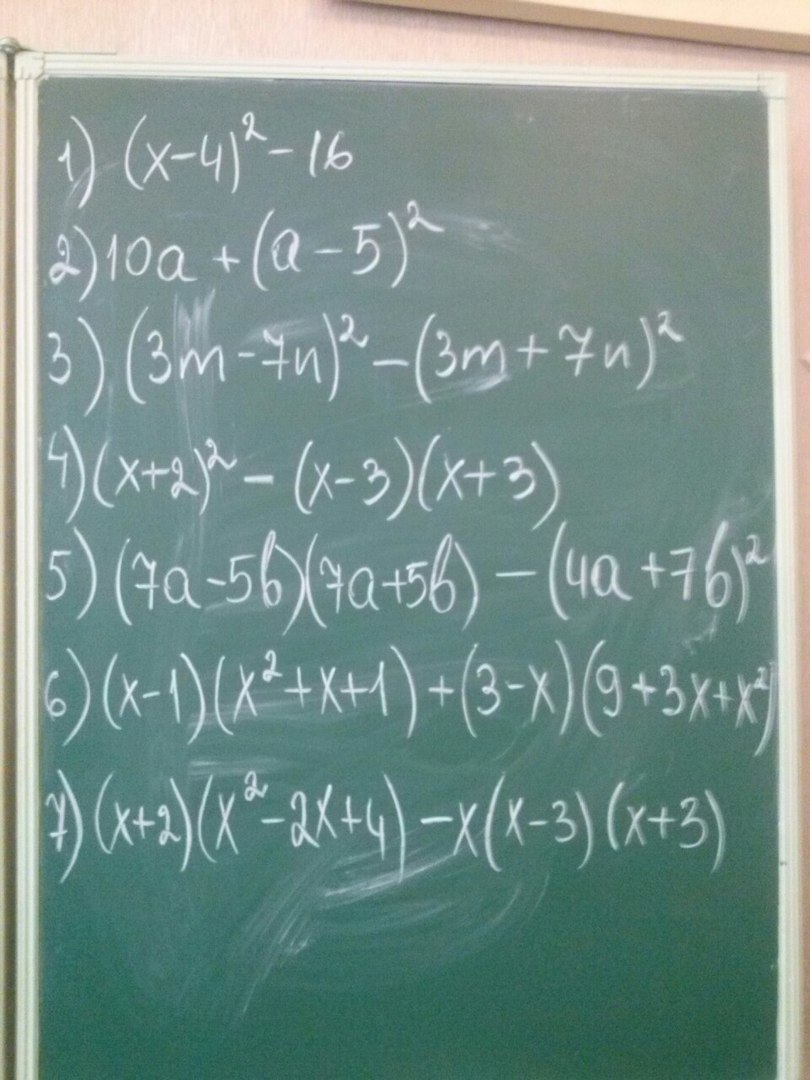 1) (x-4)² - 16
2) 10a + (a - 5)²
3) (3m - 7n)² - (3m + 7n)²
4) (x+2)² - (x-3)(x+3)
5) (7a-5b)(7a+5b) - (4a+7b)²
6) (x-1)(x²+x+1) + (3-x)(9+3x+x²)
7) (x+2)(x²-2x+4) - x(x-3)(x+3)